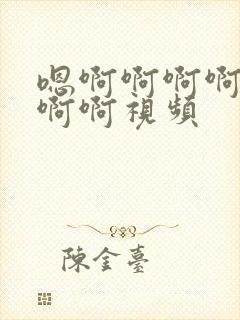 嗯啊啊啊啊
啊啊視頻
陳金臺